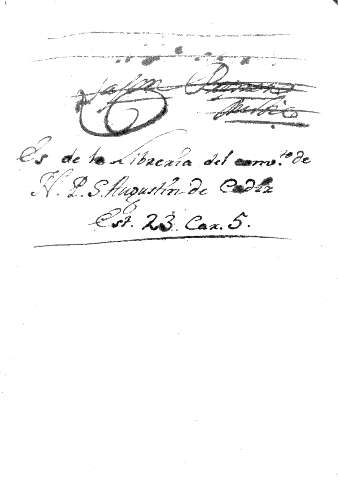 Es de la Libreria del conv.to de
N. P. S. Augustin de Cadiz
Est. 23. Cax. 5.